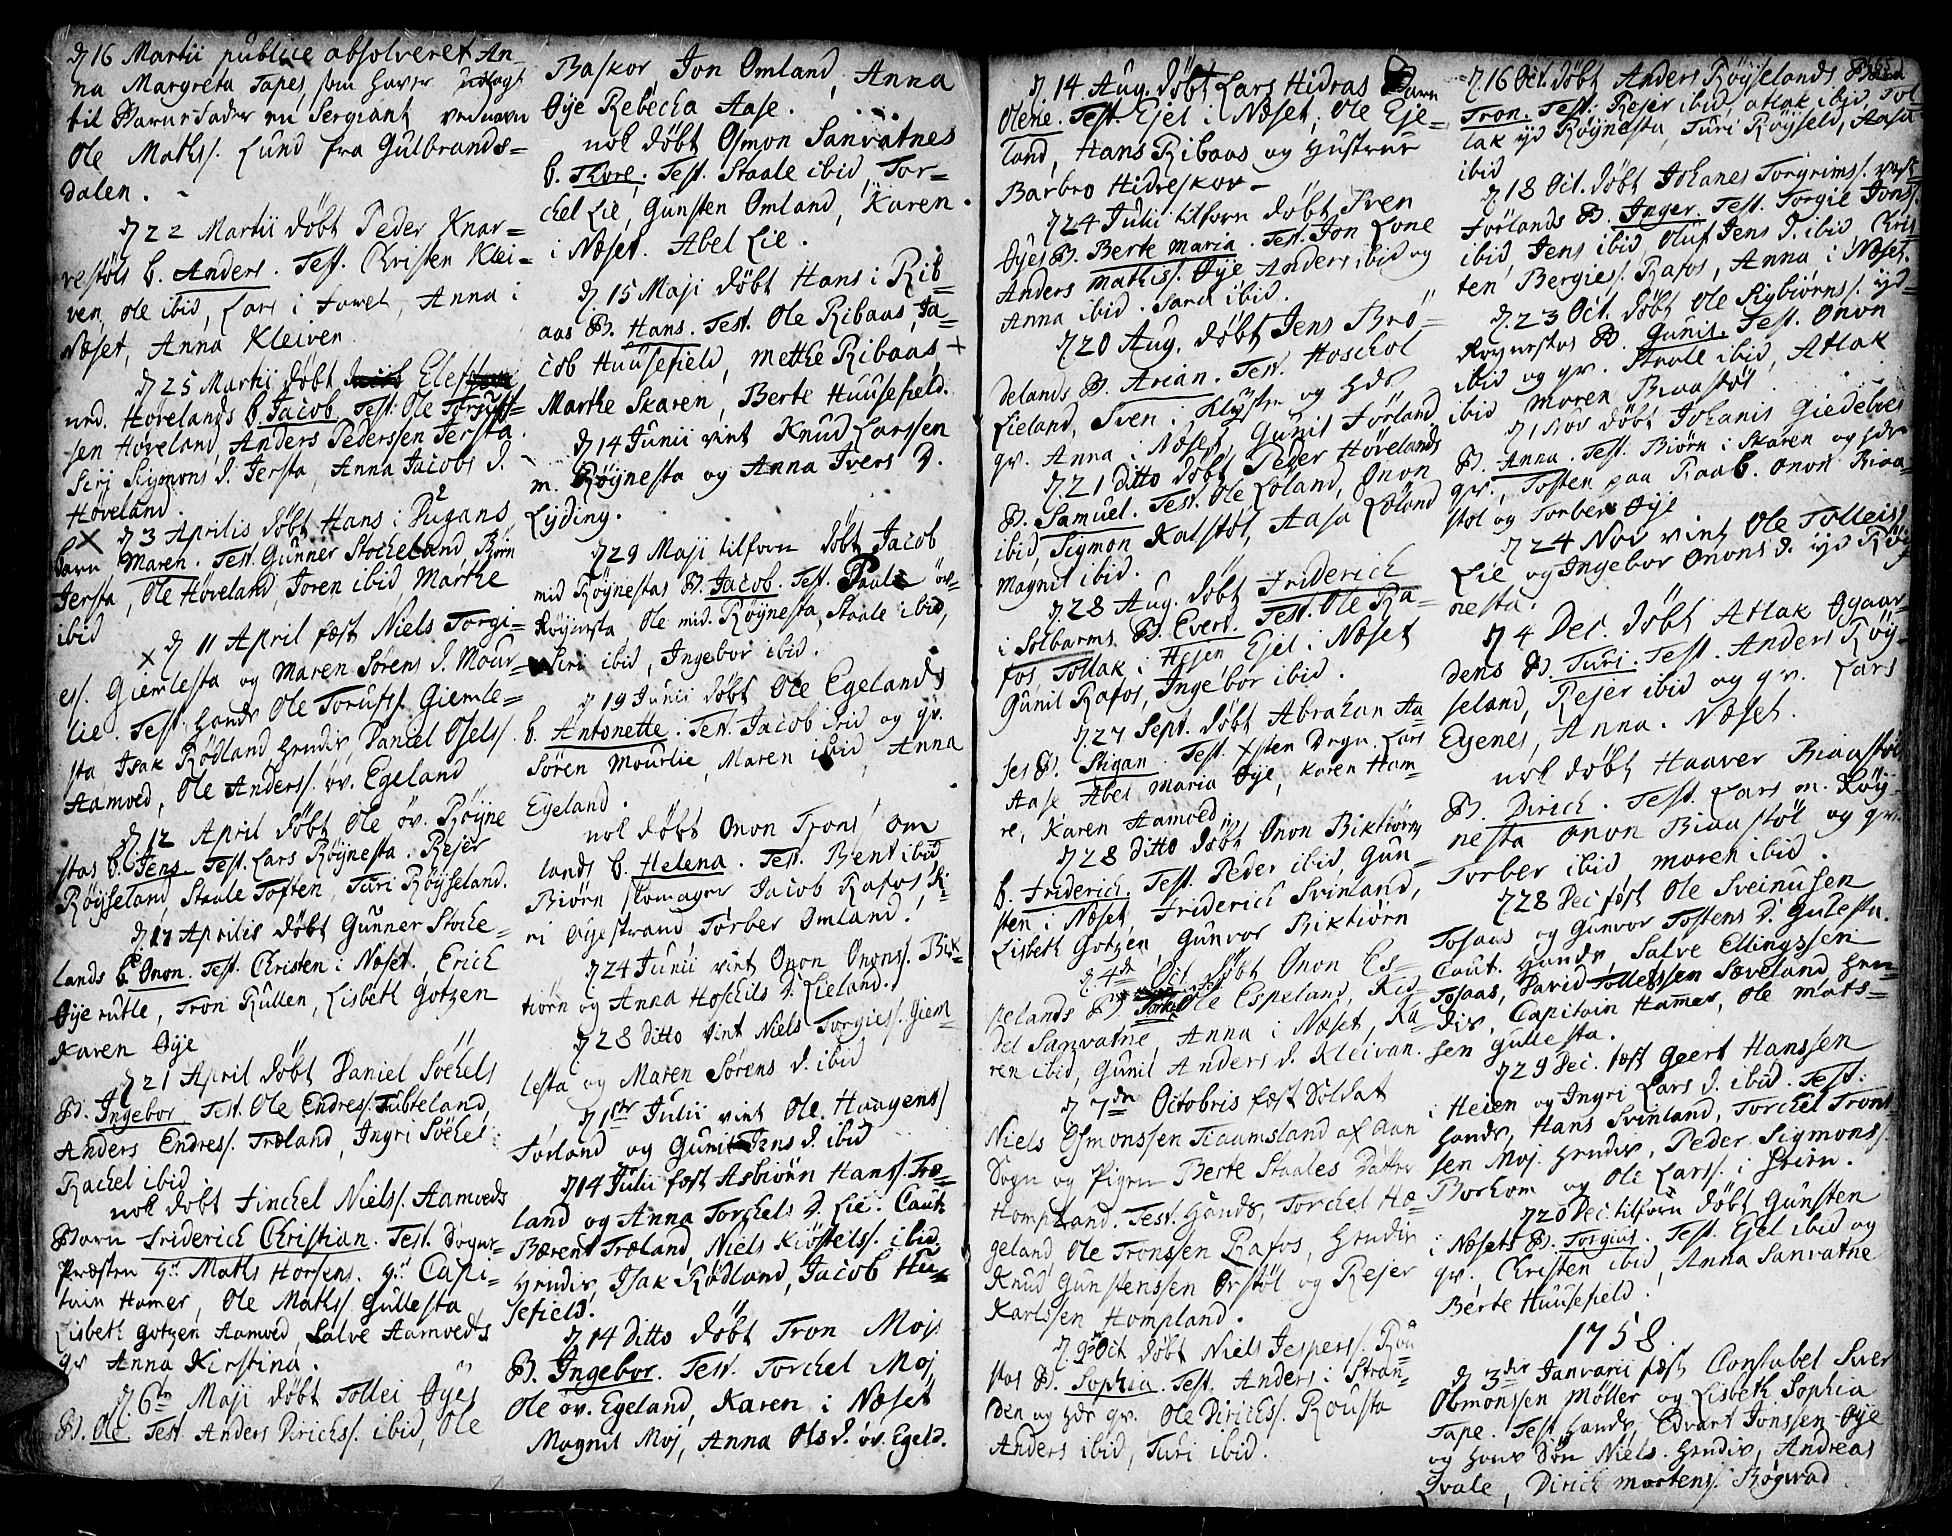 d 16 Martii publice absolveret An-
na Margreta Tapes, som haver udlagt
til Barnefader en Sergiant ved navn
Ole Mathss. Lund fra Gulbrands-
dalen.
d 22 Martii döbt Peder Knar-
restöls b. Anders. Test. Christen Klei-
ven, Ole ibid, Lars i Anna i
Næset, Anna Kleiven.
d 25 Martii döbt Elef
Hövelands b. Jacob. Test. Ole Torufs-
sen Höveland, Anders Pederssen Jersta
Sirj Sigmons d. Jersta, Anna Jacobs d.
Höveland.
d 3 Aprilis döbt Hans i Dugans
barn Maren. Test. Gunner Stocheland, Biörn
Jersta, Ole Höveland, Joren ibid, Marthe
ibid
d 11 April fæst Niels Torgi-
ess. Giemlesta og Maren Sörens d. Mour-
lie. Test. hands Ole Torufss. Giemle-
sta Isak Rödland, hendis, Daniel Osels.
Aamoed, Ole Anderss. öv. Egeland
d. 12 April döbt Ole öv. Röyne
stas b. Jens. Test. Lars Röynesta. Rejer
Röysseland, Staale Toften, Turi Röysseland.
d 17 Aprilis döbt Gunner Stoche-
lands b. Onon. Test. Christen i Næset, Erich
Öye rutle, Tron Rullen, Lisbeth Gotzen
Karen Öye
d 21 April döbt Daniel Söchels
B. Ingebor Test. Ole Endress. Tubteland,
Anders Endress. Træland, Ingri Söchel
Rachel ibid.
nok döbt Finchel Nielss. Aamoeds
Barn Friderich Christian. Test. Sogne-
Præsten Hr Maths Horsens. Hr Capi-
tain Hamer, Ole Mathss. Gullesta
Lisbeth Gotzen Aamoed, Salve Aamoeds
qv Anna Kirstina.
d 6te Maji döbt Tollei Öyes
B. Ole Test. Anders Dirichss. ibid, Ole
Baskor, Jon Omland, Anna
Öye Rebecha Aase.
nok döbt Osmon Sanvatnes
b. Thore. Test. Staale ibid, Tor-
chel Lie, Gunsten Omland, Karen
i Næset. Abel Lie.
d 15 Maji döbt Hans i Rib
aas B. Hans. Test. Ole Ribaas, Ja-
cob Huusefield, Methe Ribaas,
Marthe Skaren, Berte Huusefield.
d 14 Junii vint Knud Larssen
m. Röynesta og Anna Ivers d.
Lyding.
d 29 Maji tilforn döbt Jacob
mid Röynestas B. Jacob. Test. Paale öv-
Röynesta, Ole mid. Röynesta, Staale ibid,
Siri ibid, Ingebor ibid.
d 19 Junii döbt Ole Egelands
b. Antonette. Test. Jacob ibid og qv.
Sören Mourlie, Maren ibid, Anna
Egeland.
nok döbt Onon Trons Om
lands b. Helena. Test. Bent ibid
Biörn skomager Jacob Rafos, Ki-
ri Öyestrand Torber Omland.
d 24 Junii vint Onon Onons. Bik
tiörn og Anna Hoschils d. Lieland.
d 28 ditto vint Niels Torgiess. Giem-
lesta og Maren Sörens d. ibid
d 1ste Julii vint Ole Haagens
Förland og Gunil Jens d. ibid
d 14 Julii fæst Asbiörn Hanss. Træ-
land og Anna Torchels d. Lie. Caut.
Bærent Træland, Niels Kiöstelss. ibid.
Hendis, Isak Rödland, Jacob Hu-
sefield.
d 14 ditto döbt Tron Mojs
B. Ingebor. Test. Torchel Moj,
Ole öv. Egeland, Karen i Næset,
Magnil Moj, Anna Ols d. öv. Egeld.
d. 14 Aug. döbt Lars Hidras Barn
Olene. Test. Ejel i Næset, Ole Eje-
land, Hans Ribaas og Hustrue
Barbro Hidreskor
d 24 Julii tilforn döbt Sven
Öyes B. Berte Maria. Test. Jon Lone
Anders Mathiss. Öye Anders ibid og
Anna ibid. Sara ibid.
d 20 Aug. döbt Jens Brö-
delands B. Arian. Test. Hoschol
Lieland, Sven i Klysta og hds
qv. Anna i Næset, Gunil Förland
d. 21 ditto döbt Peder Hövelands
B. Samuel. Test. Ole Loland, Onon
ibid, Sigmon Kalstöl, Aasa Loland
Magnil ibid.
d 28 Aug. döbt Friderich
i Solbarms B. Evert. Test. Ole Ra-
fos Tollak i Hesen Ejel i Næset
Gunil Rafos, Ingebor ibid.
d. 27 Sept. döbt Abrahan Aa-
ses B. Stigan. Test. Degn. Lars
Aase Abel Maria Öye, Karen Ham-
re, Karen Aamoed
d 28 ditto döbt Onon Biktiörns
b. Friderich. Test. Peder ibid, Gun-
sten i Næset, Friderich Svinland,
Lisbeth Gotzen, Gunvor Biktiörn
d. 4de Oct döbt Onon Es-
pelands B. Ole Espeland, Kid-
del Sanvatne Anna i Næset, Ka-
ren ibid, Gunil Anders d. Kleivan.
d 7de Octobris fæst Soldat
Niels Osmonssen Tiaamsland af Aan
Sogn og Pigen Berte Staales datter
Hompland. Test. Hands, Torchel Hæ-
geland, Ole Tronssen Rafos, Hendis
Knud Gunstenssen Orstöl og Rejer
Karlssen Hompland.
d. 9de Oct döbt Niels Jesperss. Rou
stas B. Sophia. Test. Anders i Stran-
den og hds qv. Ole Dirichss. Rousta
Anders ibid, Turi ibid.
d. 16 Oct. döbt Anders Röysselands Barn
Tron. Test. Rejer ibid, Atlak ibid, Tol-
lak yd Röynesta, Turi Röyseld, Aasa
ibid
d. 18 Oct. döbt Johanes Torgrimss. vest-
Förlands B. Inger. Test. Torgie Jonss.
ibid, Jens ibid Oluf Jens d. ibid Chris
ten Bergies. Rafos, Anna i Næset.
d. 23 Oct. döbt Ole Sigbiörnss. yd-
Röynestas B. Gunil. Test. Onon
ibid og qv. Staale ibid, Atlak
ibid Maren Biaastöl
d 1 Nov döbt Johanis Giedebres
B. Anna. Test. Biörn i Skaren og hds
qv. Tosten paa Raab. Onon Biaa-
stöl og Torber Öye
d 24 Nov vint Ole Tolleiss
Lie og Ingebor Onons d. yd Röy-
nesta.
d 4 Dec. döbt Atlak Ögaar-
dens B. Turi. Test. Anders Röy-
seland, Rejer ibid og qv. Lars
Egenes, Anna. Næset.
nok döbt Haaver Biaastöls
B. Dirich. Test. Lars m. Röy-
nesta Onon Biaastöl og qv.
Torber ibid Maren ibid.
d 28 Dec fæst Ole Sveinusen
Tosaas og Gunvor Tostens d. Gulesta.
Caut. Hands, Salve Ellingssen
Tosaas, David Tollefssen Sæveland, hen-
dis, Capitain Hamer, Ole Mats-
sen Gullesta.
d 29 Dec. fæst Geert Hanssen
i Heien og Ingri Lars d. ibid. Test.
hands, Hans Svinland, Torchel Trons-
sen Moj hendis, Peder Sigmons
Borhom og Ole Larss. i
d 20 Dec. tilforn döbt Gunsten
i Næsets B. Torgius. Test. Ejel ibid og
qv. Christen ibid, Anna Sanvatne
Berte Huusefield.
1758.
d 3de Januarii fæst Constabel Siver
Osmonssen Möller og Lisbeth Sophia
Tape. Test. hands, Edvart Jonssen Öye
og hans Sön Niels. hendis, Andreas
Qvale, Dirich Mortens. Bögwad